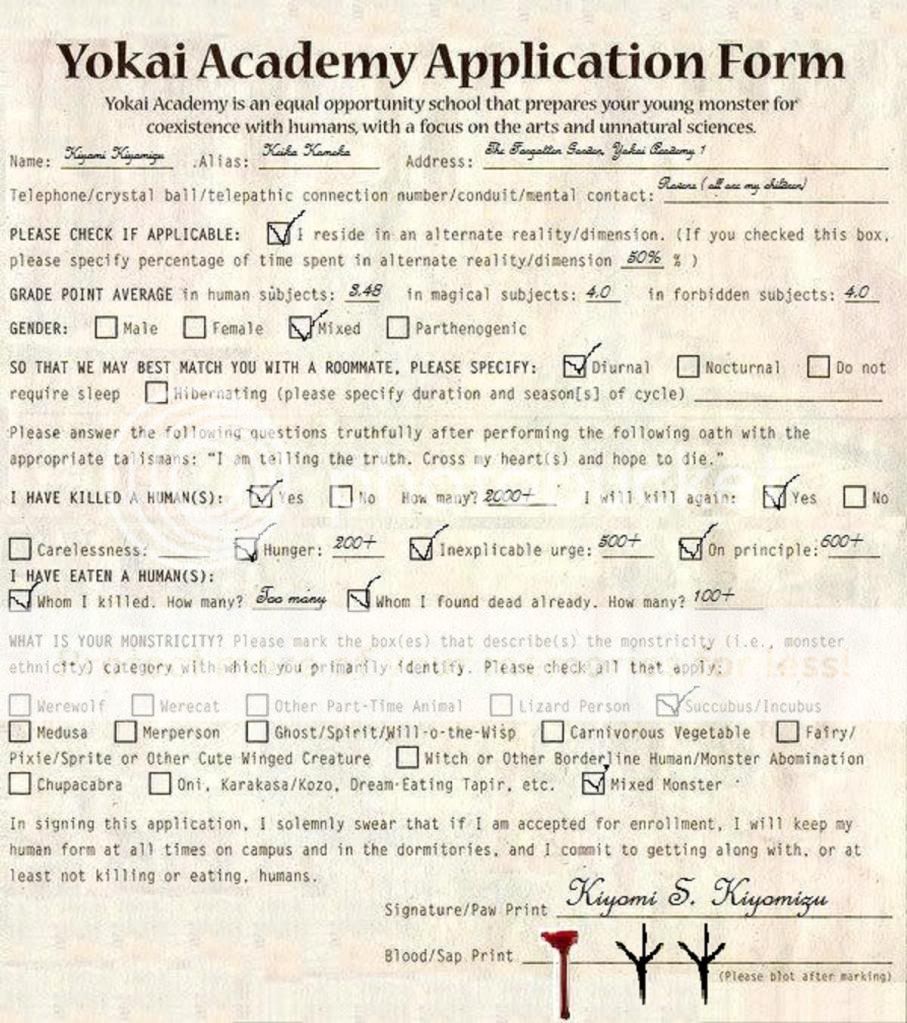 Yokai Academy Application Form
Yokai Academy is an equal opportunity school that prepares your young monster for
coexistence with humans, with a focus on the arts and unnatural sciences.
Name: Kiyomi Kiyomizu Alias: Keiko Kameko Address: The Forgotten Garden, Yokai Academy 1
Telephone/crystal ball/telepathic connection number/conduit/mental contact: Ravens (all are my children)
PLEASE CHECK IF APPLICABLE: I reside in an alternate reality/dimension. (If you checked this box,
please specify percentage of time spent in alternate reality/dimension 50% % )
GRADE POINT AVERAGE in human subjects: 3.48 in magical subjects: 4.0 in forbidden subjects: 4.0
GENDER: Male Female Mixed Parthenogenic
SO THAT WE MAY BEST MATCH YOU WITH A ROOMMATE, PLEASE SPECIFY: Diurnal Nocturnal Do not
require sleep Hibernating (please specify duration and season[s] of cycle)
Please answer the following questions truthfully after performing the following oath with the
appropriate talismans: "I am telling the truth. Cross my heart(s) and hope to die."
I HAVE KILLED A HUMAN(S): Yes No How many? 2000+ I will kill again: Yes No
Carelessness: Hunger: 200+ Inexplicable urge: 500+ On principle: 600+
I HAVE EATEN A HUMAN(S):
Whom I killed. How many? Too many Whom I found dead already. How many? 100+
WHAT IS YOUR MONSTRICITY? Please mark the box(es) that describe(s) the monstricity (i.e., monster
ethnicity) category with which you primarily identify. Please check all that apply.
Werewolf Werecat Other Part-Time Animal Lizard Person Succubus/Incubus
Medusa Merperson Ghost/Spirit/Will-o-the-Wisp Carnivorous Vegetable Fairy/
Pixie/Sprite or Other Cute Winged Creature Witch or Other Borderline Human/Monster Abomination
Chupacabra Oni, Karakasa/Kozo, Dream-Eating Tapir, etc. Mixed Monster
In signing this application, I solemnly swear that if I am accepted for enrollment, I will keep my
human form at all times on campus and in the dormitories, and I commit to getting along with, or at
least not killing or eating, humans.
Signature/Paw Print Kiyomi S. Kiyomizu
Blood/Sap Print
(Please blot after marking)